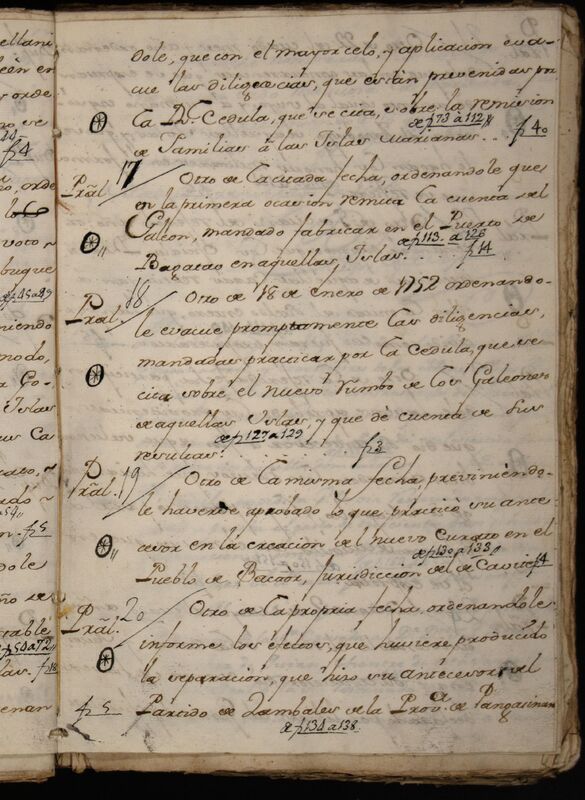 dole, que con el mayor celo, y aplicacion eva-
cue las diligecias, que estàn prevenidas por
la Rl. Cedula, que se cita, sobre la remision
de Familias à las Islas Marianas. de f 73 a 112 f 40
Prãl. 17 Otro de la citada fecha, ordenandole que
en la primera ocasion remita la cuenta del
Galeon, mandado fabricar en el Puerto de
Bagatao en aquellas Islas. de f 113. a 126 f 14
Prãl. 18 Otro de 18 de enero de 1752 ordenando-
le evacue promptamente las diligencias,
mandadas practicar por la Cedula, que se
cita sobre el nuevo rumbo de los Galeones
de aquellas Islas, y que dè cuenta de sus
resultas. de f 127 a 129 f 3
Prãl. 19 Otro de la misma fecha previniendo-
le haverse aprobado lo que practicò su ante
cesor en la creacion del nuevo Curato en el
Pueblo de Bacoòr, Jurisdiccion del de Cavite de f 130 a 133 f 4
Prãl. 20 Otro de la propria fecha, ordenandole
informe los efectos, que huviere producido
la separacion, que hizo su antecesor del
f 5 Partido de Zambales de la Prova. de Pangasinan
de f 134 a 138.